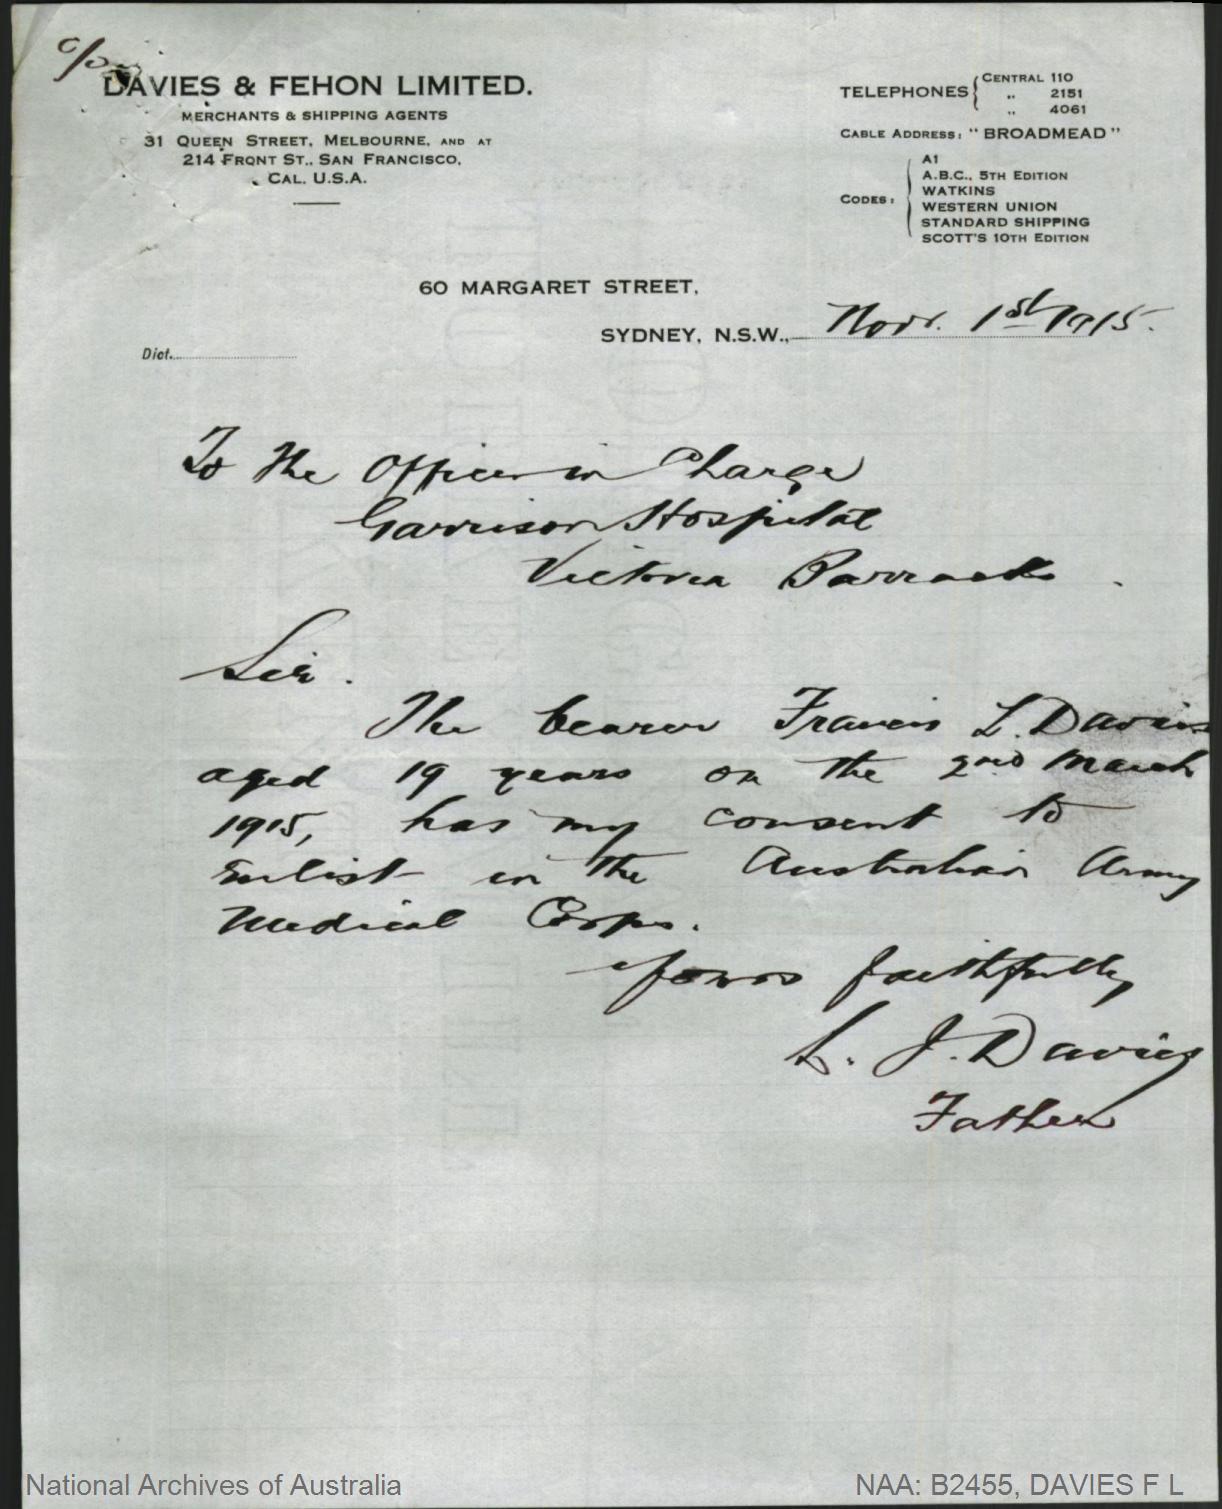 c/o
DAVIES & FEHON LIMITED.
MERCHANTS & SHIPPING AGENTS
31 QUEEN STREET, MELBOURNE, AND AT
214 FRONT ST., SAN FRANCISCO,
CAL. U.S.A.
TELEPHONES { CENTRAL 110
„ 2151
„ 4061
CABLE ADDRESS: "BROADMEAD"
CODES:
A1
A.B.C., 5TH EDITION
WATKINS
WESTERN UNION
STANDARD SHIPPING
SCOTT'S 10TH EDITION
60 MARGARET STREET,
SYDNEY, N.S.W., Novr. 1st 1915.
Dict.
To the Officer in Charge
Garrison Hospital
Victoria Barracks.
Sir.
The bearer Francis L. Davies
aged 19 years on the 2nd March
1915, has my consent to
Enlist in the Australian Army
Medical Corps.
Yours faithfully
L. J. Davies
Father
National Archives of Australia
NAA: B2455, DAVIES F L